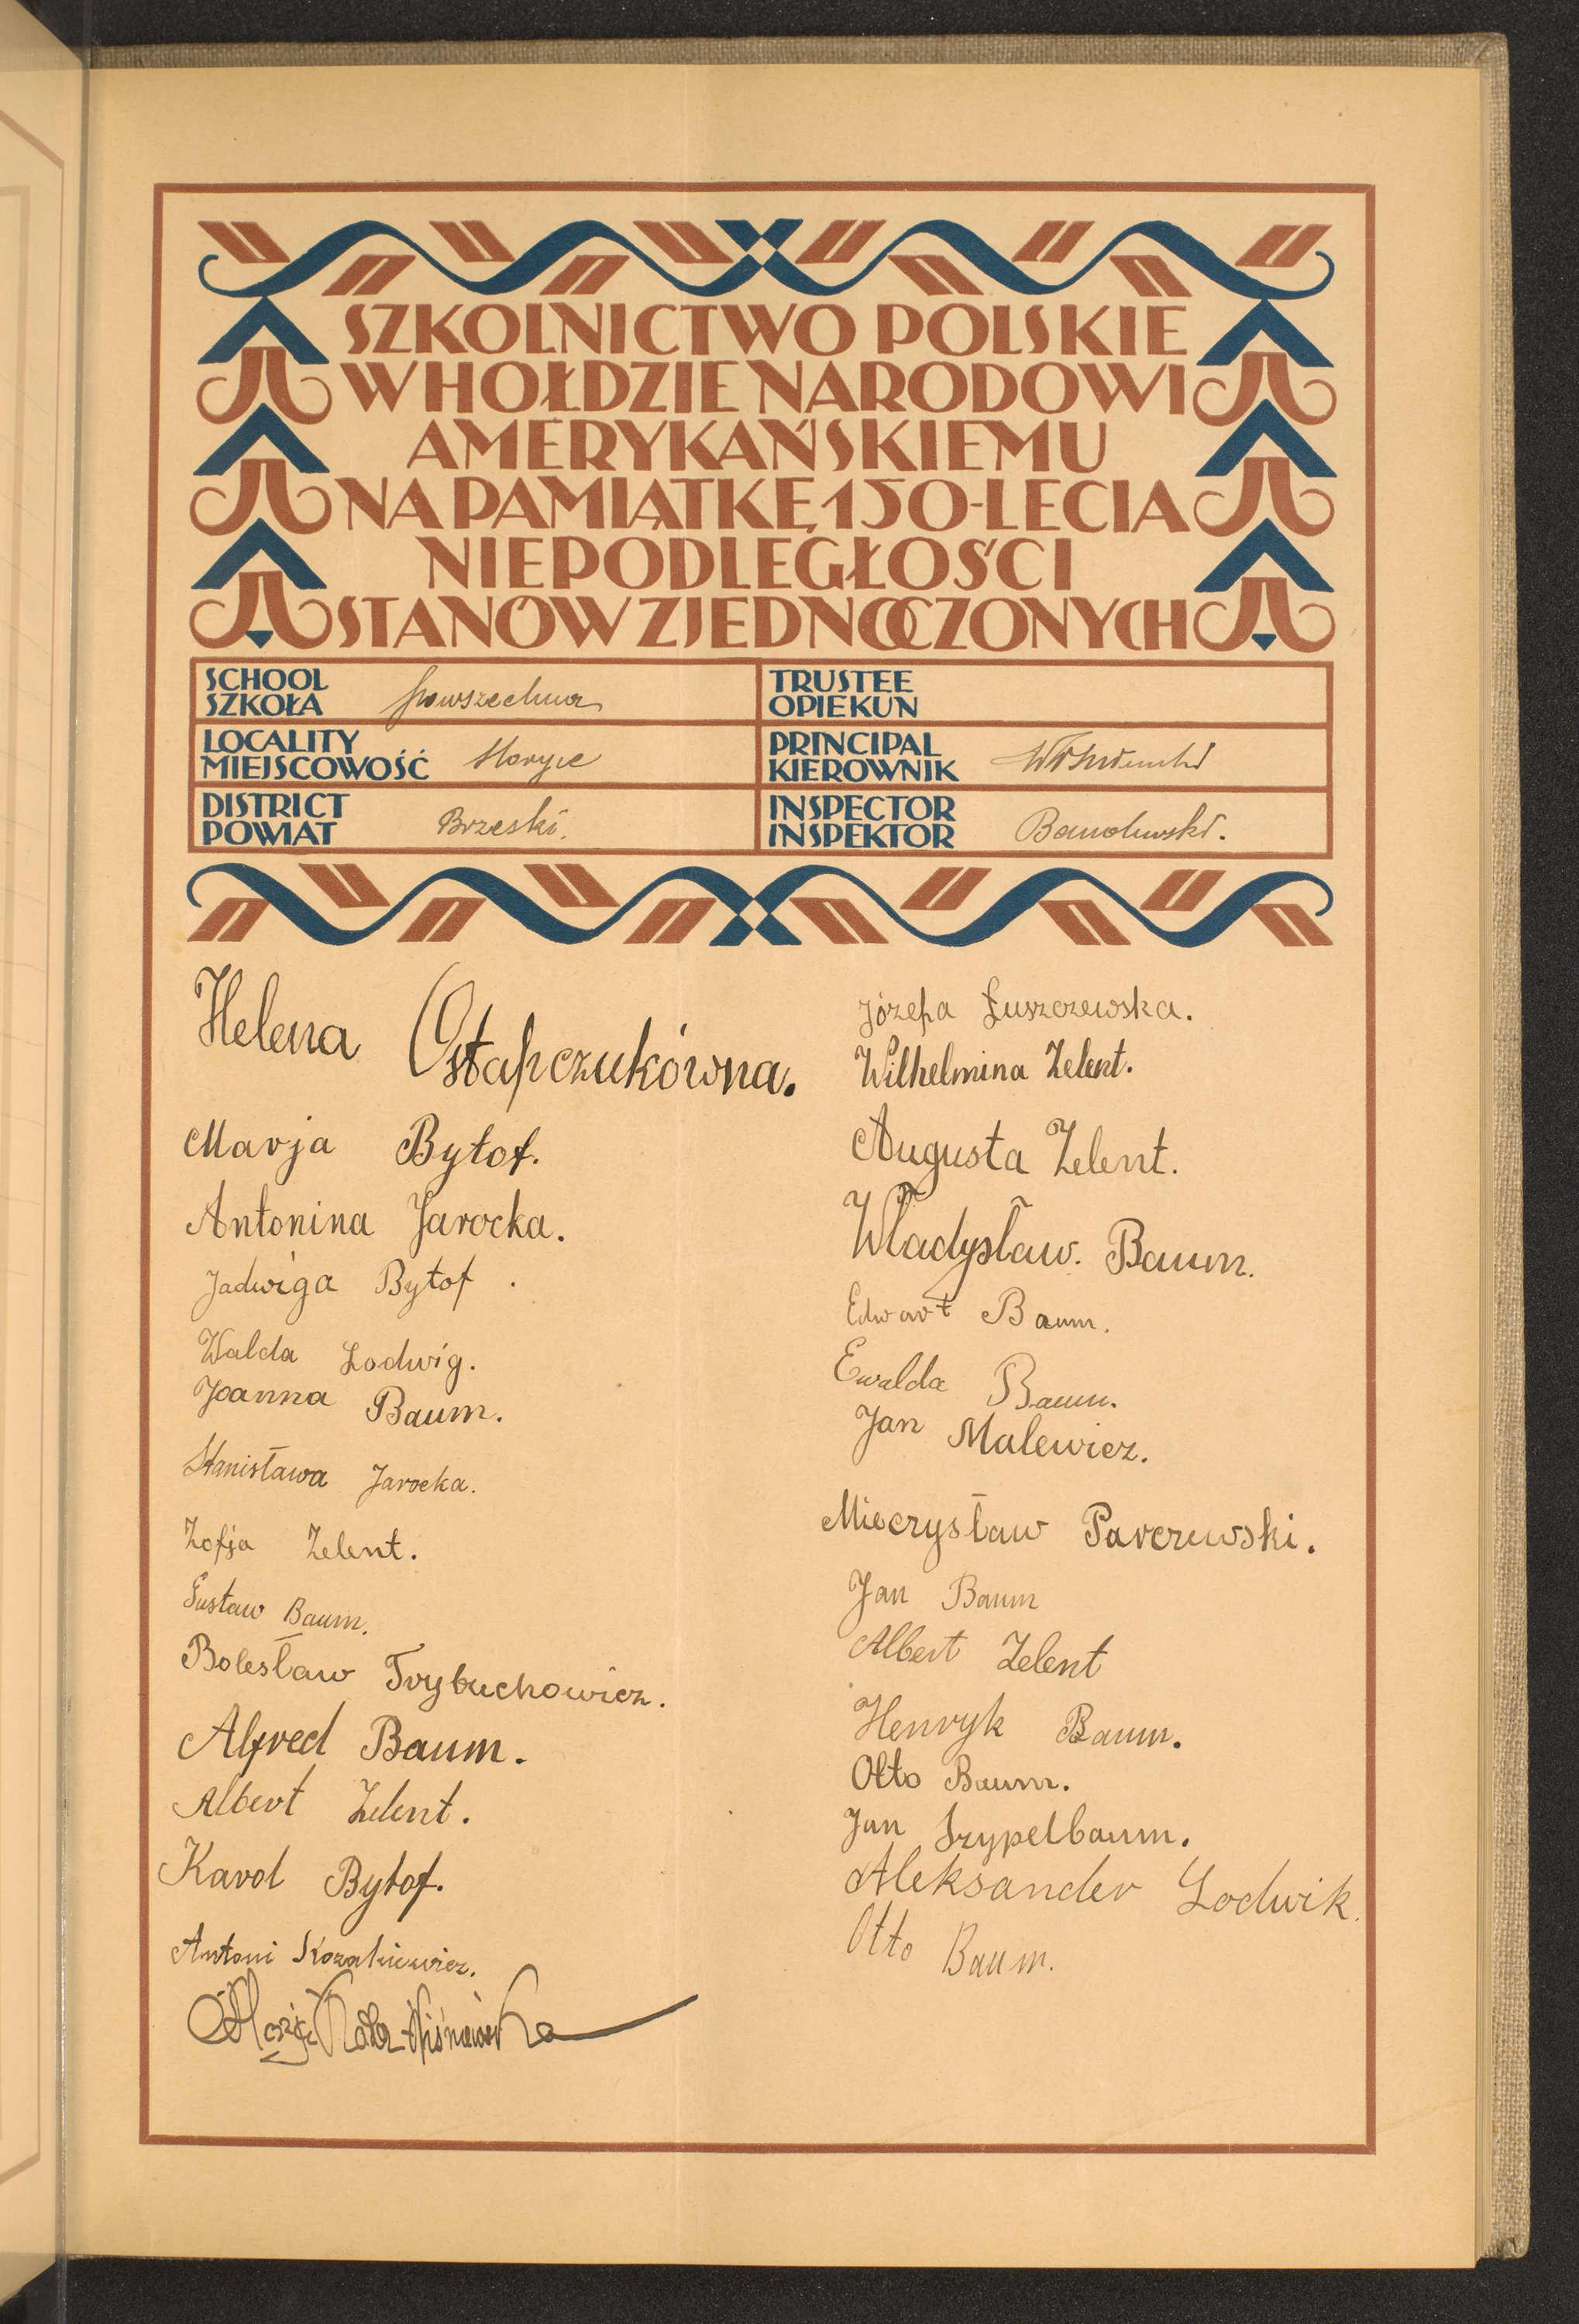 SZKOLNICTWO POLSKIE
W HOŁDZIE NARODOWI
AMERYKAŃSKIEMU
NA PAMIĄTKĘ 150-LECIA
NIEPODLEGŁOŚCI
STANÓW ZJEDNOCZONYCH
SCHOOL
SZKOŁA powszechna
TRUSTEE
OPIEKUN
LOCALITY
MIEJSCOWOŚĆ
PRINCIPAL
KIEROWNIK
DISTRICT
POWIAT Brzeski.
INSPECTOR
INSPEKTOR
Helena Ostapczukówna.
Marja Bytof.
Antonina Jarocka.
Jadwiga Bytof.
Walda Lodwig.
Joanna Baum.
Stanisława Jarocka.
Zofja Zelent.
Gustaw Baum.
Bolesław Trybuchowicz.
Alfred Baum.
Albert Zelent.
Karol Bytof.
Antoni Kozakiewicz.
Józefa Łuszczewska.
Wilhelmina Zelent.
Augusta Zelent.
Władysław. Baum.
Edwart Baum.
Ewalda Baum.
Jan Malewicz.
Mieczysław Parczewski.
Jan Baum
Albert Zelent
Henryk Baum.
Otto Baum.
Jan Szypelbaum.
Aleksander Lodwik.
Otto Baum.